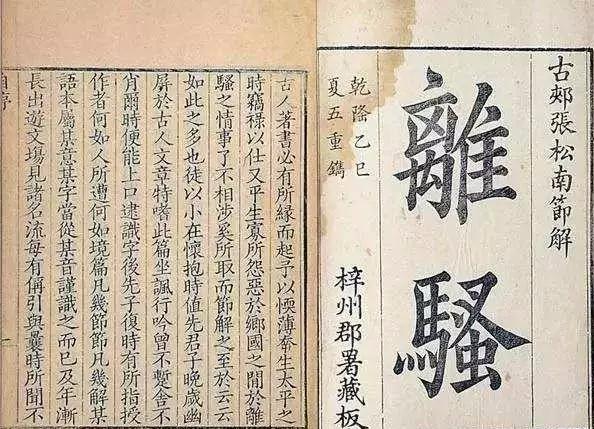 古郟張松南節解
離騷
乾隆乙巳
夏五重鐫
梓州郡署藏板
古人著書必有所緣而起予以愞薄幸生太平之
時竊祿以仕又平生寡所怨惡於鄉國之閒於離
騷之情事了不相涉奚所取而節解之至於云云
如此之多也徒以小在懷抱時值先君子晚歲幽
屏於古人文章特嗜此篇坐諷行吟曾不蹔舍不
肖爾時便能上口逮識字後先子復時有所指授
作者何如人所遭何如境篇凡幾節節凡幾解某
語本屬某意某字當從某音謹識之而已及年漸
長出遊文場見諸名流每有偁引與曩時所聞不